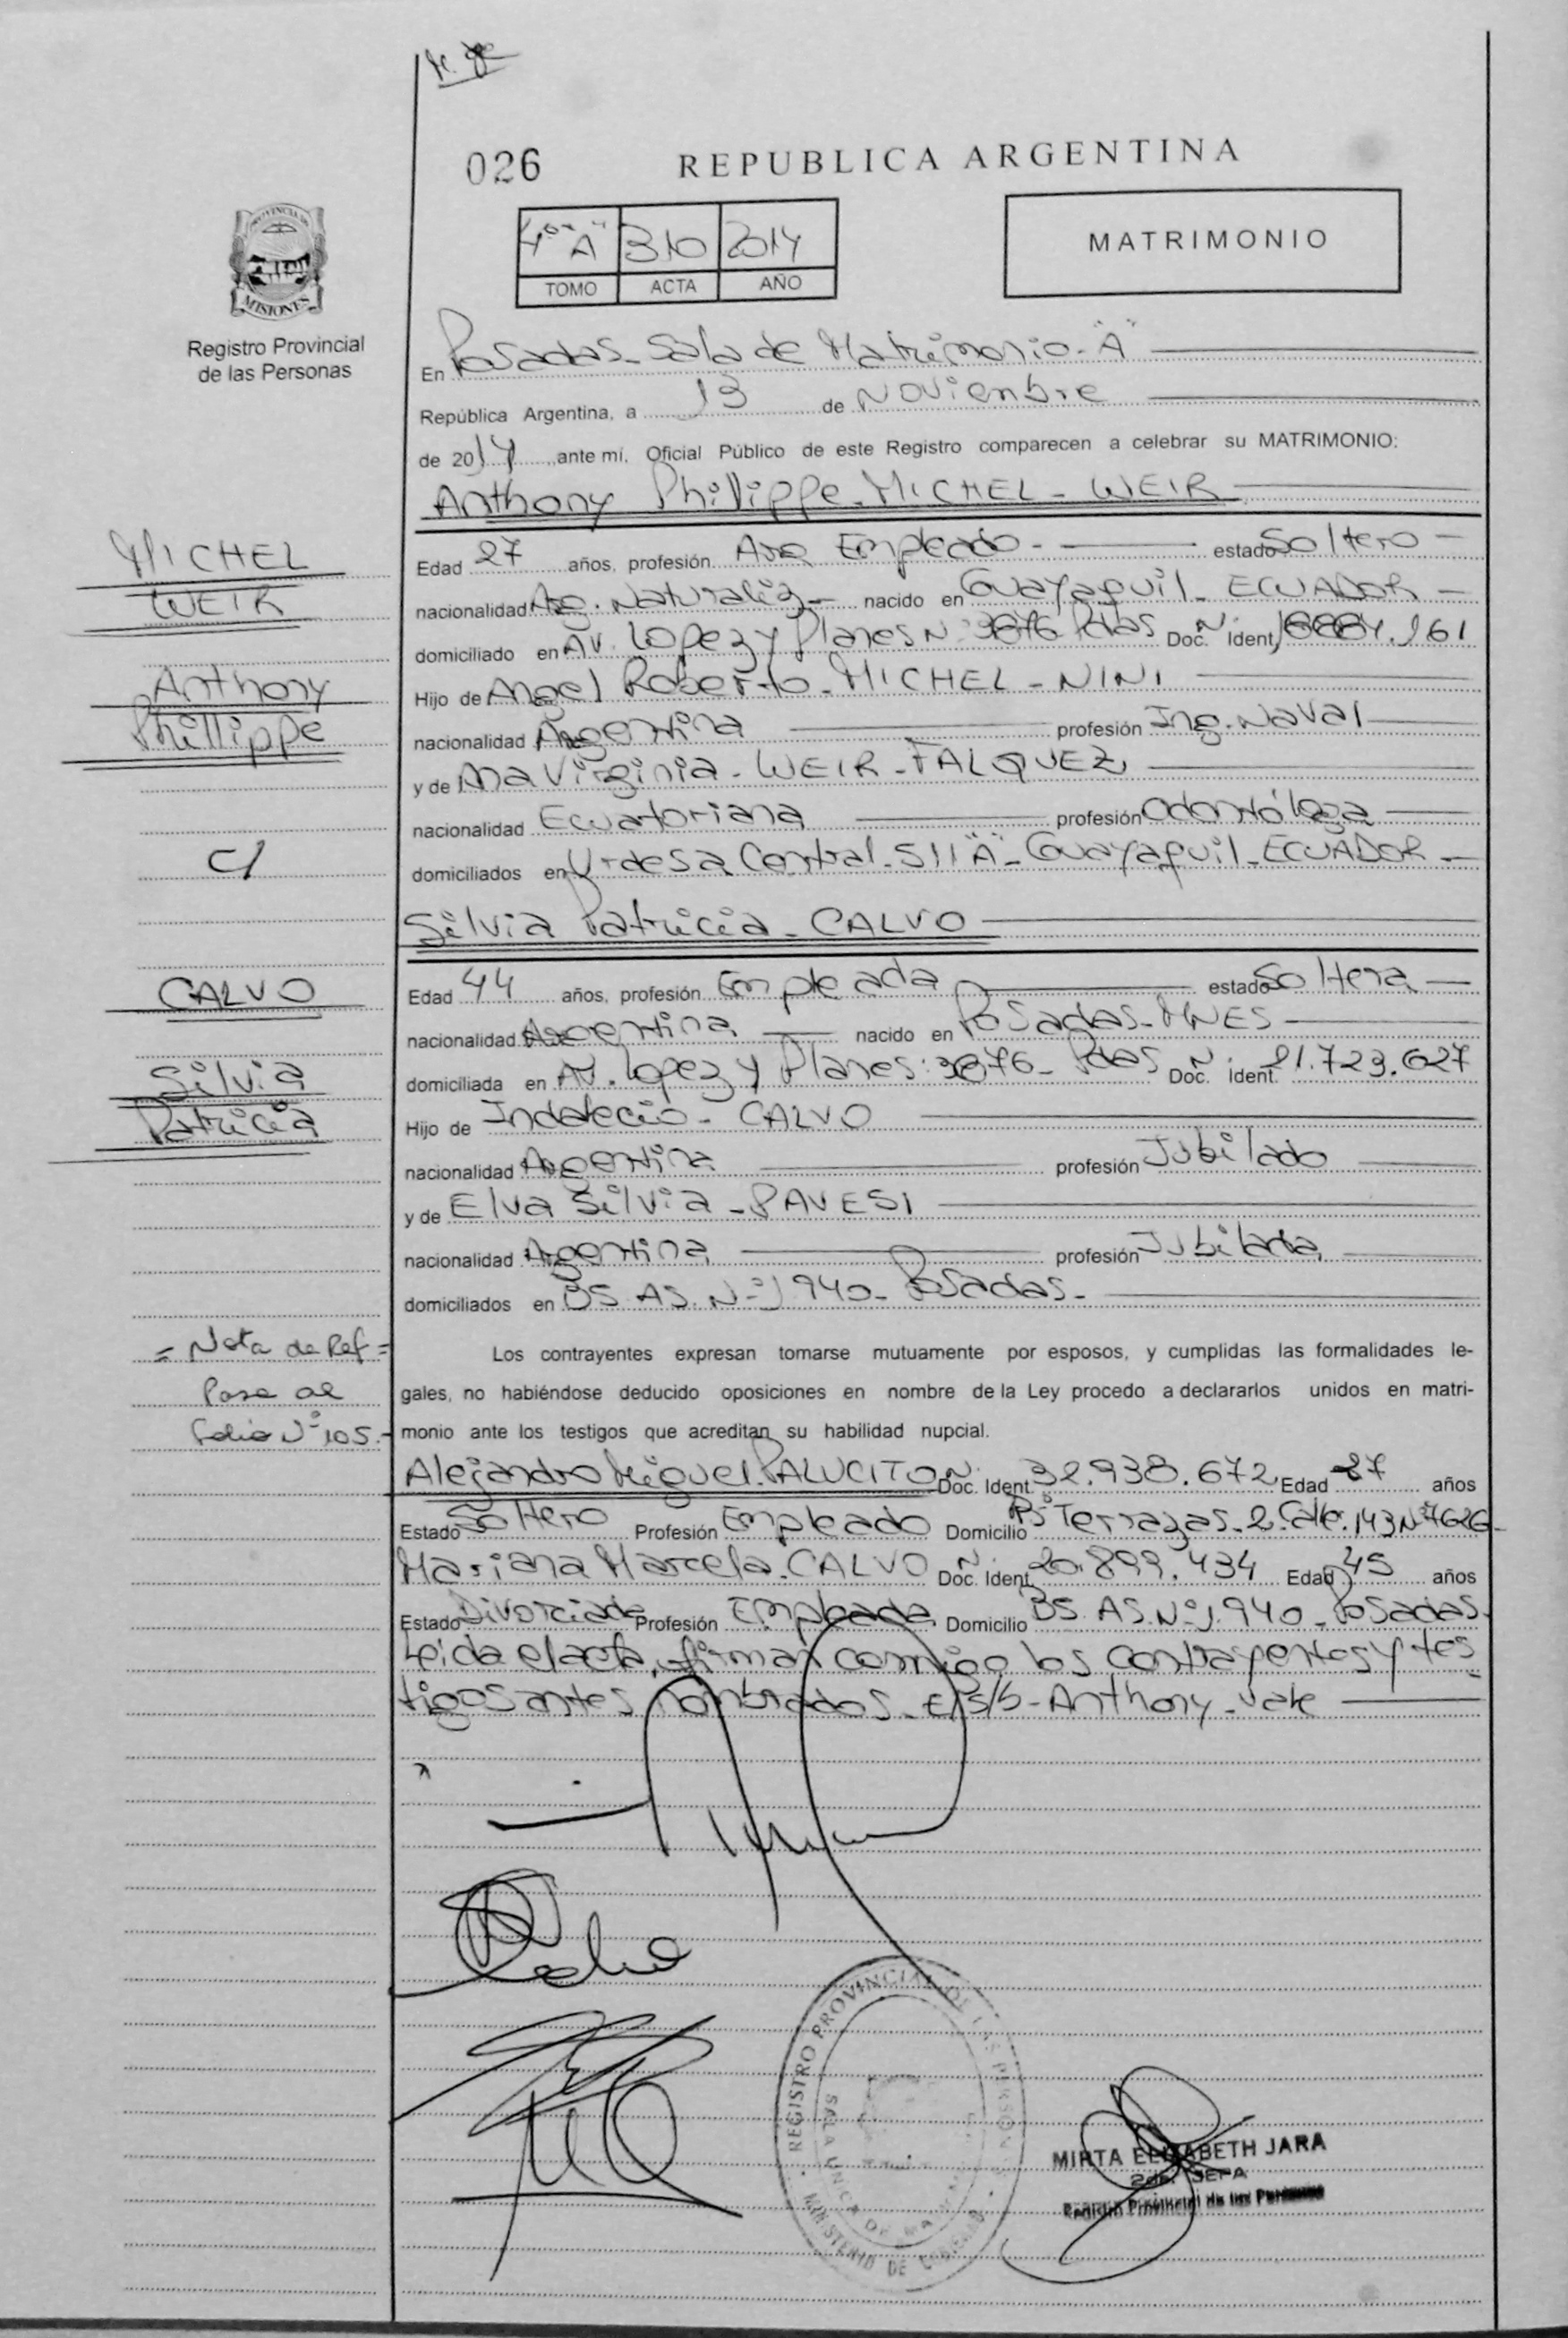 026
REPUBLICA ARGENTINA
4° "A" 310 2014
TOMO ACTA AÑO
MATRIMONIO
PROVINCIA DE
MISIONES
Registro Provincial
de las Personas
En Posadas - Sala de Matrimonio - "A"
República Argentina, a 13 de Noviembre
de 2014 ante mí, Oficial Público de este Registro comparecen a celebrar su MATRIMONIO:
Anthony Phillippe - MICHEL - WEIR
MICHEL
WEIR
Anthony
Phillippe
c/
CALVO
Silvia
Patricia
Edad 27 años, profesión Empleado - estado Soltero -
nacionalidad Arg. Naturaliz - nacido en Guayaquil - ECUADOR -
domiciliado en Av. Lopez y Planes N° 3876 Pdas Doc. N° Ident.
Hijo de Angel Roberto - MICHEL - NINI
nacionalidad Argentina profesión Ing. Naval
y de Ana Virginia - WEIR - FALQUEZ
nacionalidad Ecuatoriana profesión Odontóloga
domiciliados en Urdesa Central - 511 "A" - Guayaquil - ECUADOR -
Silvia Patricia - CALVO
Edad 44 años, profesión Empleada estado Soltera -
nacionalidad Argentina nacido en Posadas - MNES
domiciliada en Av. Lopez y Planes: 3876 - Pdas Doc. N° Ident. 21.723.627
Hijo de Indalecio - CALVO
nacionalidad Argentina profesión Jubilado
y de Elva Silvia - PAVESI
nacionalidad Argentina profesión Jubilada
domiciliados en BS. AS. N° 1940 - Posadas -
= Nota de Ref =
Pasa al
folio N° 105.-
Los contrayentes expresan tomarse mutuamente por esposos, y cumplidas las formalidades le-
gales, no habiéndose deducido oposiciones en nombre de la Ley procedo a declararlos unidos en matri-
monio ante los testigos que acreditan su habilidad nupcial.
Alejandro Miguel PALUCITO Doc. N° Ident. 32.938.672 Edad 27 años
Estado Soltero Profesión Empleado Domicilio B° Terrazas - 2 - Calle 143 N° 7626 -
Mariana Marcela - CALVO Doc. N° Ident. 20.899.434 Edad 45 años
Estado Divorciada Profesión Empleada Domicilio BS. AS. N° 1940 - Posadas -
Leida el acta, firman conmigo los contrayentes y tes
tigos antes nombrados - E/s/b - Anthony - Vale
REGISTRO PROVINCIAL DE LAS PERSONAS
SALA UNICA DE
MINISTERIO DE GOBIERNO
MIRTA ELIZABETH JARA
2da. JEFA
Registro Provincial de las Personas